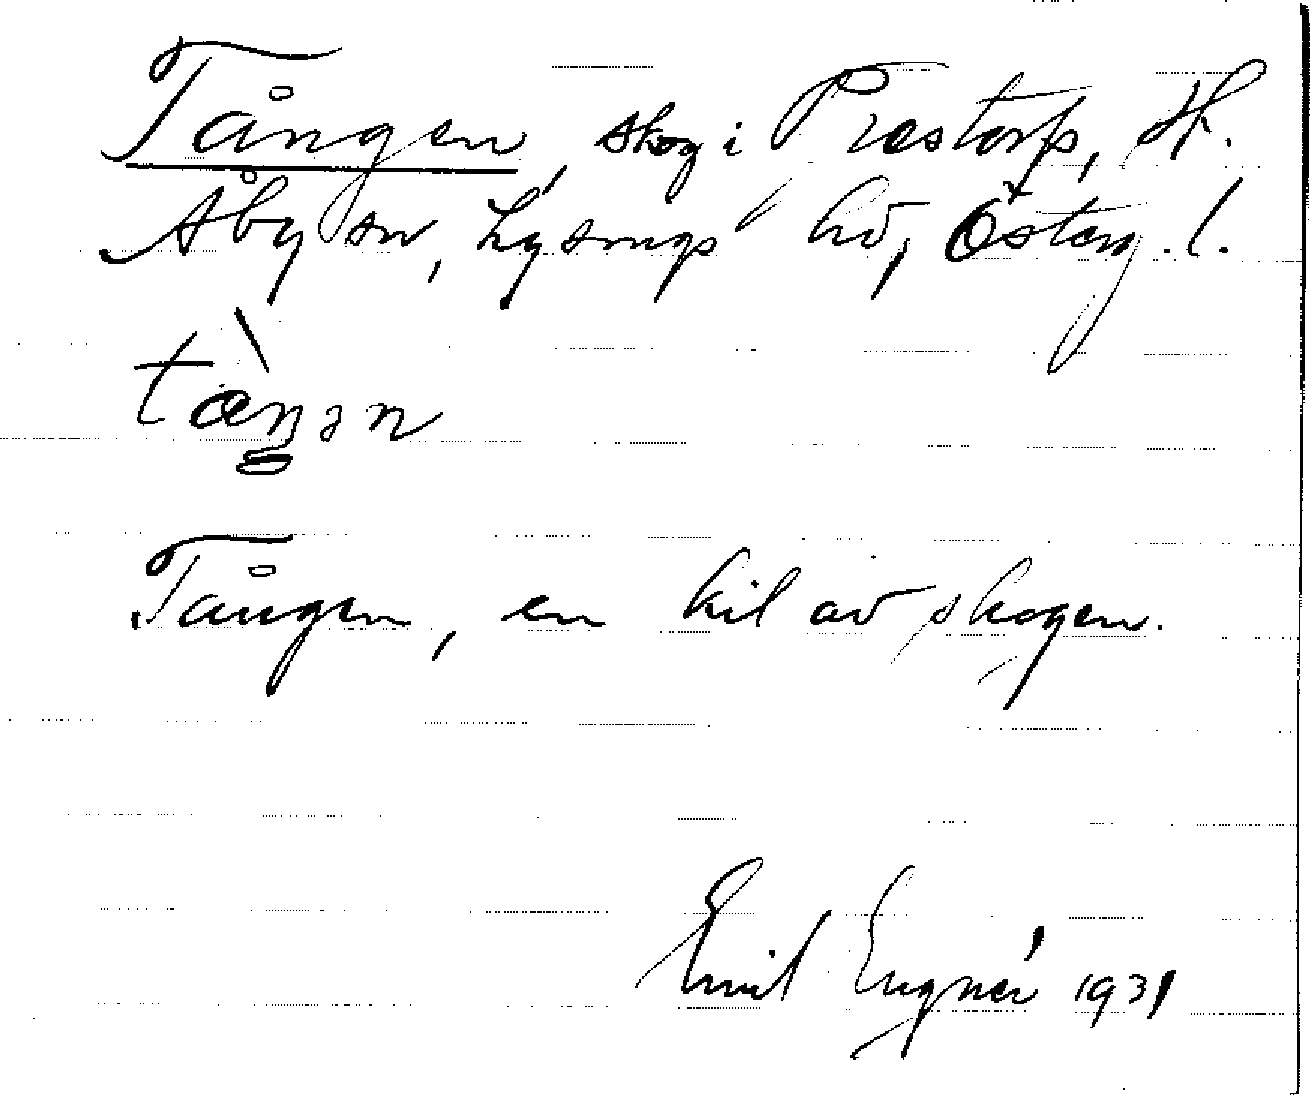 Tången, skog i Præstorp, H.
Åby sn, Lysings hd, Österg. l.
tæ̀ŋən
Tången, en kil av skogen.
Emil Engnér 1931